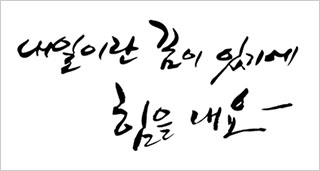 내일이란 꿈이 있기에
힘을 내요-